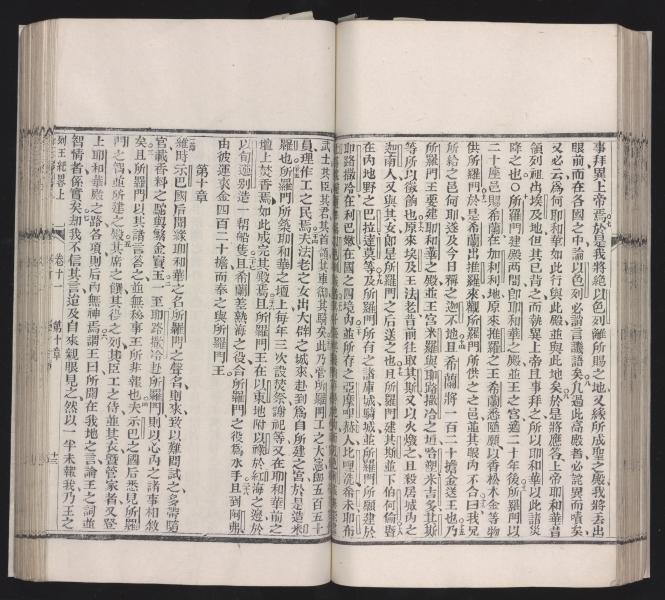 事拜異上帝焉於是我將絕以色列離所賜之地又緣所成聖之殿我將丟出
眼前而在各國之中論以色列必論言譏語矣凡過此高殿者必詫異而嘖矣
又必云爲何耶和華如此行與此殿並與此地矣於是將應答上帝耶和華昔
領列祖出埃及地但其已背之而執異上帝且事拜之所以耶和華以此諸災
降之也○所羅門建殿兩間卽耶和華之殿並王之宮過二十年後所羅門以
二十座邑賜希蘭在加利利地原來推羅之王希蘭悉隨願以香松木金等物
供所羅門於是希蘭出推羅來觀所羅門所供之之邑並其眼內不合曰我兄
所給之邑何耶遂及今日稱之迦不地且希蘭將一百二十擔金送王也乃
所羅門王要建耶和華之殿並王宮米羅與耶路撒冷之垣 米吉多其斯
等所以徵餉也原來埃及王法老昔前往取其斯又以火燬之且殺居城內之
迦南人又與其女卽是所羅門之后送之也且所羅門建其斯並下伯何倫
在內地野之巴拉達莫等及所羅門所有之諸庫城騎城並所羅門所願建於
耶路撒冷在利巴嫩在國之四境並所存之亞摩 人比哩洗希未耶布
武士其臣其君其首領其車 其騎矣此乃當所羅門工之大憲卽五百五十
員理作工之民焉夫法老之女出大辟之城來赴到爲自所建之宮於是造米
羅也所羅門所築耶和華之壇上每年三次設焚祭謝祀等又在耶和華前之
壇上焚香焉如此成完其殿焉且所羅門王在以東地附以祿於紅海之邊於
以旬迦別造一幫船隻且希蘭差熟海之役合所羅門之役爲水手且到阿弗
由彼運來金四百二十擔而奉之與所羅門王
第十章
維時示巴國后聞緣耶和華之名所羅門之聲名則來致以難問試之多帶隨
官載香料之駝與幾金寶玉一至耶路撒冷赴所羅門則以心內之諸事相敘
矣且所羅門以其諸言答之並無秘事王所非報也夫示巴之國后悉見所羅
門之智並所建之殿其席之饌其役之列其臣工之侍並其衣暨管家者又登
上耶和華殿之路各項則后內無神焉謂王曰所聞在我地之言論王之詞並
智情者係實矣却我不信其言迨及自來親眼見之然以一半未報我乃王之
列王紀畧上
卷十一
第十章